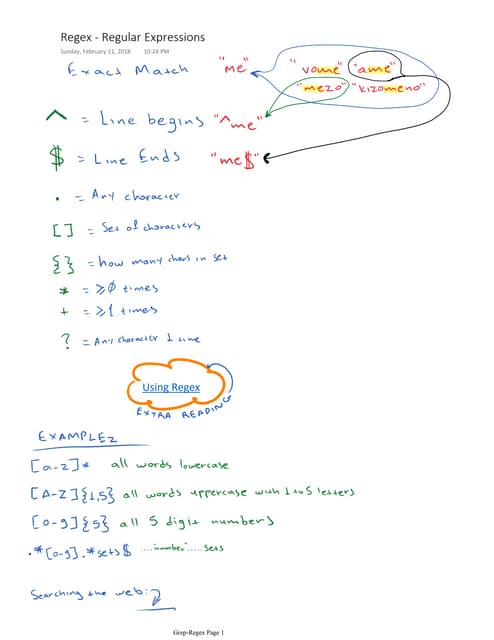 Regex - Regular Expressions
Sunday, February 11, 2018 10:24 PM
Exact Match "me" "vome" "ame"
"mezo" "kizomeno"
^ = Line begins "^me"
$ = Line Ends "me$"
. = Any character
[ ] = Set of characters
{ } = how many chars in set
* = ≥0 times
+ = ≥1 times
? = Any character 1 time
Using Regex
EXTRA READING
EXAMPLEZ
[a-z]* all words lowercase
[A-Z]{1,5} all words uppercase with 1 to 5 letters
[0-9]{5} all 5 digit numbers
.*[0-9].*sets$ ...."number".....sets
Searching the web:
Grep-Regex Page 1